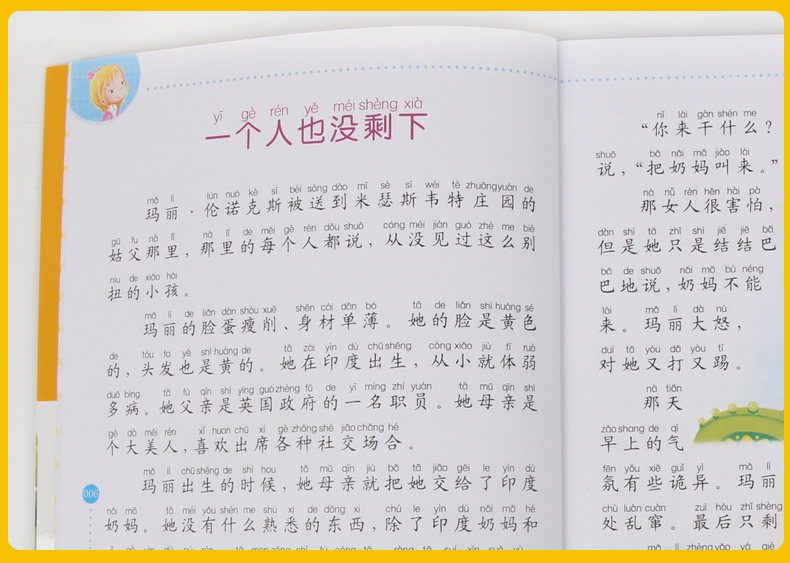 yī gè rén yě méi shèng xià
一个人也没剩下
mǎ lì lún nuò kè sī bèi sòng dào mǐ sè sī wéi tè zhuāng yuán de
玛丽·伦诺克斯被送到米瑟斯韦特庄园的
gū fu nà lǐ nà lǐ de měi gè rén dōu shuō cóng méi jiàn guò zhè me biè
姑父那里,那里的每个人都说,从没见过这么别
niu de xiǎo hái
扭的小孩。
mǎ lì de liǎn dàn shòu xuē shēn cái dān bó tā de liǎn shì huáng sè
玛丽的脸蛋瘦削、身材单薄。她的脸是黄色
de tóu fa yě shì huáng de tā zài yìn dù chū shēng cóng xiǎo jiù tǐ ruò
的,头发也是黄的。她在印度出生,从小就体弱
duō bìng tā fù qīn shì yīng guó zhèng fǔ de yì míng zhí yuán tā mǔ qīn shì
多病。她父亲是英国政府的一名职员。她母亲是
gè dà měi rén xǐ huan chū xí gè zhǒng shè jiāo chǎng hé
个大美人,喜欢出席各种社交场合。
mǎ lì chū shēng de shí hou tā mǔ qīn jiù bǎ tā jiāo gěi le yìn dù
玛丽出生的时候,她母亲就把她交给了印度
nǎi mā tā méi yǒu shén me shú xī de dōng xi chú le yìn dù nǎi mā hé
奶妈。她没有什么熟悉的东西,除了印度奶妈和
006
nǐ lái gàn shén me
“你来干什么?
shuō bǎ nǎi mā jiào lái
说,“把奶妈叫来。”
nà nǚ rén hěn hài pà
那女人很害怕,
dàn shì tā zhǐ shì jiē jiē bā
但是她只是结结巴
bā de shuō nǎi mā bù néng
巴地说,奶妈不能
lái mǎ lì dà nù
来。玛丽大怒,
duì tā yòu dǎ yòu tī
对她又打又踢。
nà tiān
那天
zǎo shang de qì
早上的气
fēn yǒu xiē guǐ yì mǎ lì
氛有些诡异。玛丽
chù luàn cuàn zuì hòu zhǐ shèng
处乱窜。最后只剩